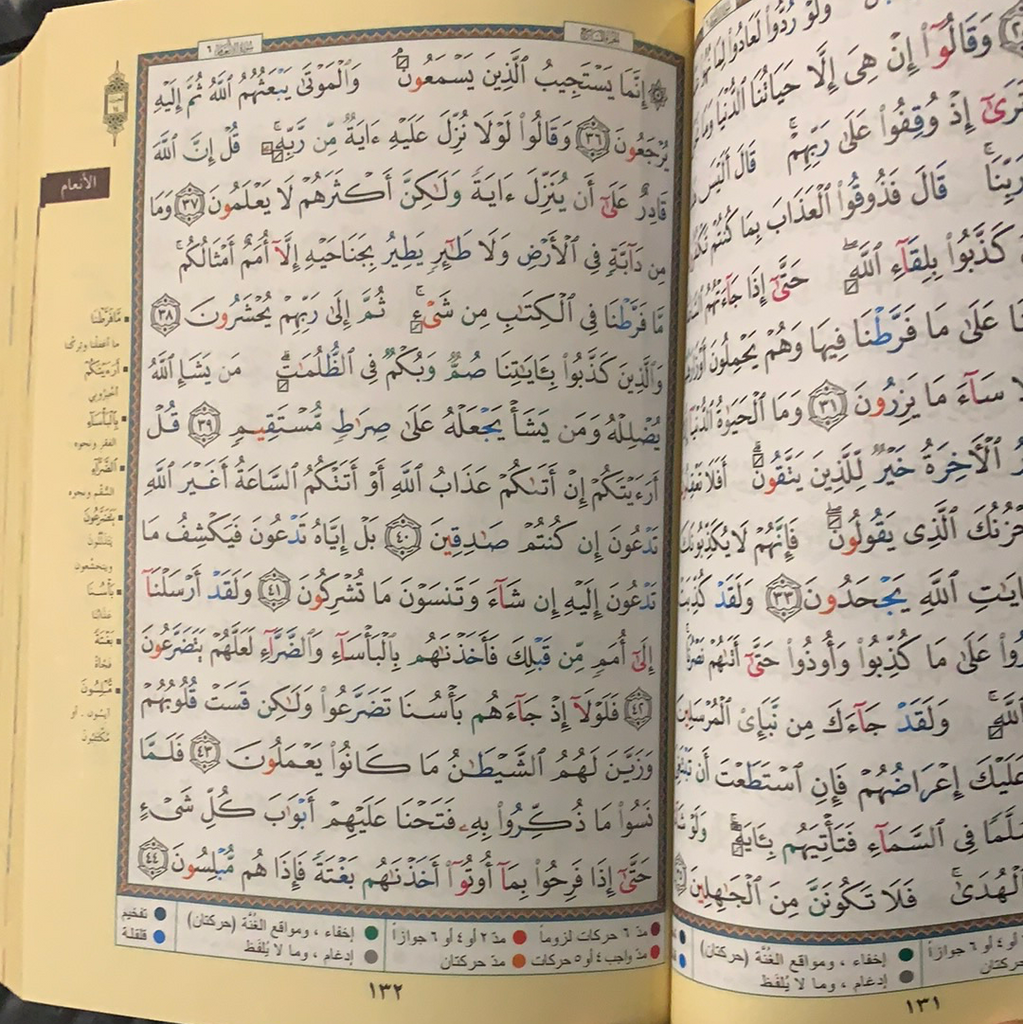 سورة الأنعام ٦
الجزء السابع
۞ إِنَّمَا يَسْتَجِيبُ الَّذِينَ يَسْمَعُونَ ۘ وَالْمَوْتَىٰ يَبْعَثُهُمُ اللَّهُ ثُمَّ إِلَيْهِ
يُرْجَعُونَ ٣٦ وَقَالُوا لَوْلَا نُزِّلَ عَلَيْهِ ءَايَةٌ مِّن رَّبِّهِ ۚ قُلْ إِنَّ اللَّهَ
قَادِرٌ عَلَىٰٓ أَن يُنَزِّلَ ءَايَةً وَلَٰكِنَّ أَكْثَرَهُمْ لَا يَعْلَمُونَ ٣٧ وَمَا
مِن دَآبَّةٍ فِي الْأَرْضِ وَلَا طَٰٓئِرٍ يَطِيرُ بِجَنَاحَيْهِ إِلَّآ أُمَمٌ أَمْثَالُكُم ۚ
مَّا فَرَّطْنَا فِي الْكِتَٰبِ مِن شَيْءٍ ۚ ثُمَّ إِلَىٰ رَبِّهِمْ يُحْشَرُونَ ٣٨
وَالَّذِينَ كَذَّبُوا بِـَٔايَٰتِنَا صُمٌّ وَبُكْمٌ فِي الظُّلُمَٰتِ ۗ مَن يَشَإِ اللَّهُ
يُضْلِلْهُ وَمَن يَشَأْ يَجْعَلْهُ عَلَىٰ صِرَٰطٍ مُّسْتَقِيمٍ ٣٩ قُلْ
أَرَءَيْتَكُمْ إِنْ أَتَىٰكُمْ عَذَابُ اللَّهِ أَوْ أَتَتْكُمُ السَّاعَةُ أَغَيْرَ اللَّهِ
تَدْعُونَ إِن كُنتُمْ صَٰدِقِينَ ٤٠ بَلْ إِيَّاهُ تَدْعُونَ فَيَكْشِفُ مَا
تَدْعُونَ إِلَيْهِ إِن شَآءَ وَتَنسَوْنَ مَا تُشْرِكُونَ ٤١ وَلَقَدْ أَرْسَلْنَآ
إِلَىٰٓ أُمَمٍ مِّن قَبْلِكَ فَأَخَذْنَٰهُم بِالْبَأْسَآءِ وَالضَّرَّآءِ لَعَلَّهُمْ يَتَضَرَّعُونَ
٤٢ فَلَوْلَآ إِذْ جَآءَهُم بَأْسُنَا تَضَرَّعُوا وَلَٰكِن قَسَتْ قُلُوبُهُمْ
وَزَيَّنَ لَهُمُ الشَّيْطَٰنُ مَا كَانُوا يَعْمَلُونَ ٤٣ فَلَمَّا
نَسُوا مَا ذُكِّرُوا بِهِ فَتَحْنَا عَلَيْهِمْ أَبْوَٰبَ كُلِّ شَيْءٍ
حَتَّىٰٓ إِذَا فَرِحُوا بِمَآ أُوتُوٓا أَخَذْنَٰهُم بَغْتَةً فَإِذَا هُم مُّبْلِسُونَ ٤٤
الأنعام
مَّا فَرَّطْنَا
ما أغفلنا وتركنا
أَرَءَيْتَكُمْ
أخبروني
بِالْبَأْسَآءِ
الفقر ونحوه
الضَّرَّآءِ
السُّقم ونحوه
يَتَضَرَّعُونَ
يتذللون
ويتخشعون
بَأْسُنَا
عذابنا
بَغْتَةً
فجأة
مُّبْلِسُونَ
آيسون ، أو
مكتئبون
مدّ ٦ حركات لزوماً مدّ ٢ أو ٤ أو ٦ جوازاً إخفاء ، ومواقع الغُنَّة (حركتان) تفخيم
مدّ واجب ٤ أو ٥ حركات مدّ حركتان إدغام ، وما لا يُلفَظ قلقلة
١٣٢
وَلَوْ رُدُّوا لَعَادُوا لِمَا
وَقَالُوٓا إِنْ هِيَ إِلَّا حَيَاتُنَا الدُّنْيَا وَمَا
تَرَىٰٓ إِذْ وُقِفُوا عَلَىٰ رَبِّهِمْ ۚ قَالَ أَلَيْسَ
رَبِّنَا ۚ قَالَ فَذُوقُوا الْعَذَابَ بِمَا كُنتُمْ
كَذَّبُوا بِلِقَآءِ اللَّهِ ۖ حَتَّىٰٓ إِذَا جَآءَتْهُمُ
عَلَىٰ مَا فَرَّطْنَا فِيهَا وَهُمْ يَحْمِلُونَ
سَآءَ مَا يَزِرُونَ ٣١ وَمَا الْحَيَوٰةُ الدُّنْيَآ
الْءَاخِرَةُ خَيْرٌ لِّلَّذِينَ يَتَّقُونَ ۗ أَفَلَا
الَّذِي يَقُولُونَ ۖ فَإِنَّهُمْ لَا يُكَذِّبُونَكَ
اللَّهِ يَجْحَدُونَ ٣٣ وَلَقَدْ كُذِّبَتْ
عَلَىٰ مَا كُذِّبُوا وَأُوذُوا حَتَّىٰٓ أَتَىٰهُمْ نَصْرُنَا
اللَّهِ ۚ وَلَقَدْ جَآءَكَ مِن نَّبَإِى الْمُرْسَلِينَ
عَلَيْكَ إِعْرَاضُهُمْ فَإِنِ اسْتَطَعْتَ أَن
فِي السَّمَآءِ فَتَأْتِيَهُم بِـَٔايَةٍ ۚ وَلَوْ
الْهُدَىٰ ۚ فَلَا تَكُونَنَّ مِنَ الْجَٰهِلِينَ
أو ٤ أو ٦ جوازاً إخفاء ، ومواقع الغُنَّة (حركتان)
حركتان إدغام ، وما لا يُلفَظ
١٣١